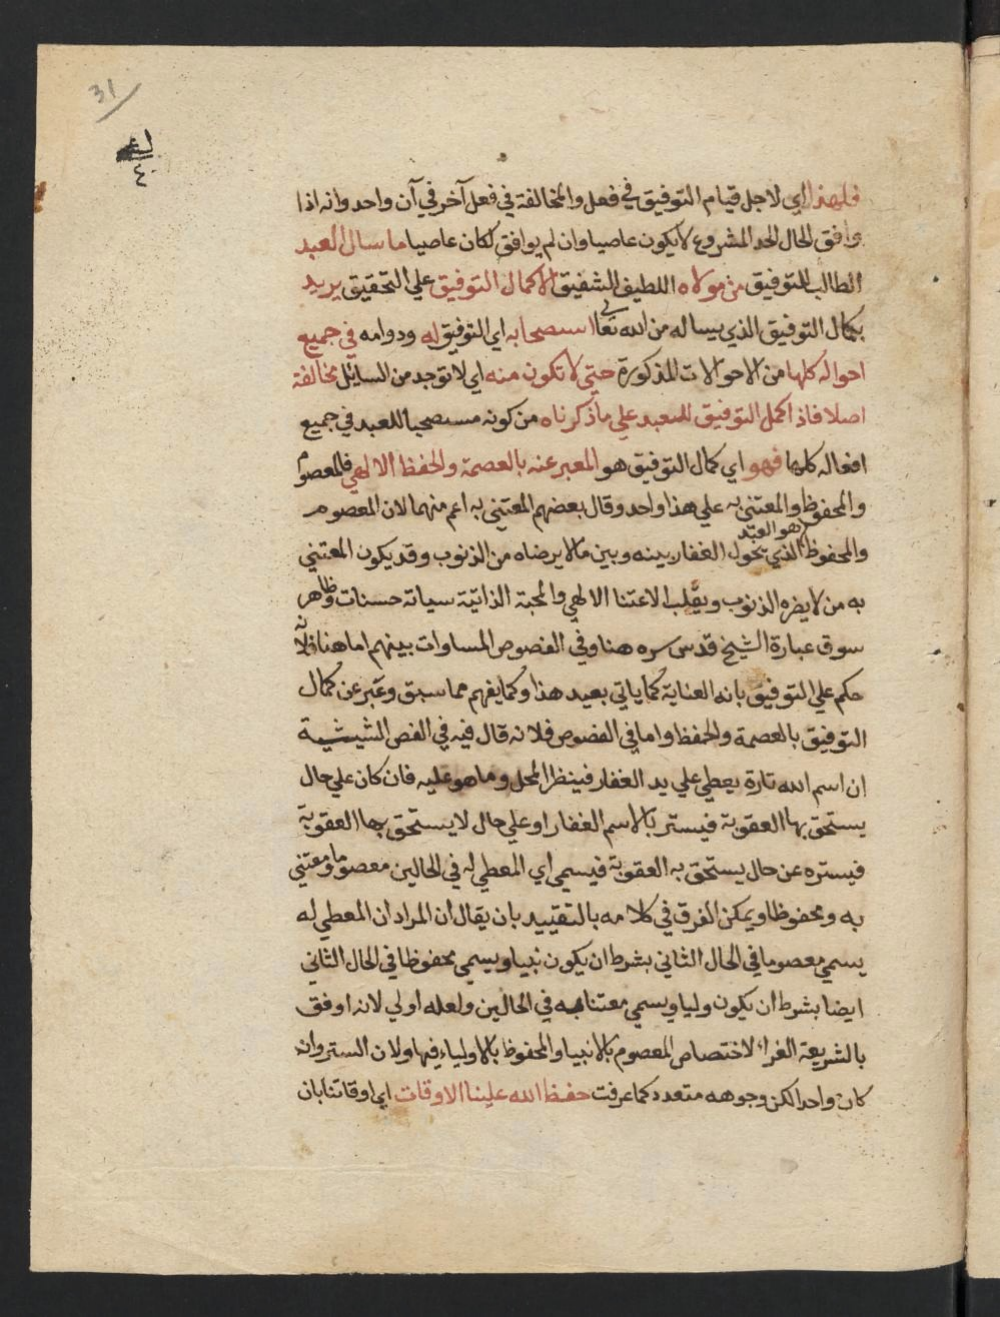 31
٤٠
فلهذا اي لاجل قيام التوفيق في فعل والمخالفة في فعل آخر في آن واحد وانه اذا
وافق الحال الحد المشروع لايكون عاصيا وان لم يوافق لكان عاصيا ما سال العبد
الطالب للتوفيق من مولاه اللطيف الشفيق الا كمال التوفيق علي التحقيق يريد
بكمال التوفيق الذي يساله من الله تعالي استصحابه اي التوفيق له ودوامه في جميع
احواله كلها من الاحوالات المذكورة حتي لا تكون منه اي لا توجد من السايل مخالفة
اصلا فاذا كمل التوفيق للعبد علي ما ذكرناه من كونه مستصحبا للعبد في جميع
افعاله كلها فهو اي كمال التوفيق هو المعبر عنه بالعصمة والحفظ الالهي فالمعصوم
والمحفوظ والمعتني به علي هذا واحد وقال بعضهم المعتني به اعم منهما لان المعصوم
والمحفوظ هو العبد الذي يحول الغفار بينه وبين ما لا يرضاه من الذنوب وقد يكون المعتني
به من لايضره الذنوب ويقلب الاعتنا الالهي والمحبة الذاتية سياته حسنات وظاهر
سوق عبارة الشيخ قدس سره هنا وفي الفصوص المساوات بينهم اما هنا فلانه
حكم علي التوفيق بانه العناية كما ياتي بعيد هذا وكما يفهم مما سبق وعبر عن كمال
التوفيق بالعصمة والحفظ واما في الفصوص فلانه قال فيه في الفص الشيثية
ان اسم الله تارة يعطي علي يد الغفار فينظر المحل وما هو عليه فان كان علي حال
يستحق بها العقوبة فيستر بالاسم الغفار او علي حال لا يستحق بها العقوبة
فيستره عن حال يستحق به العقوبة فيسمي اي المعطي له في الحالين معصوما ومعتني
به ومحفوظا ويمكن الفرق في كلامه بالتقييد بان يقال ان المراد ان المعطي له
يسمي معصوما في الحال الثاني بشرط ان يكون نبيا ويسمي محفوظا في الحال الثاني
ايضا بشرط ان يكون وليا ويسمي معتنا به في الحالين ولعله اولي لانه اوفق
بالشريعة الغراء لاختصاص المعصوم بالانبيا والمحفوظ بالاولياء فيها ولان الستر وان
كان واحدا لكن وجوهه متعدد كما عرفت حفظ الله علينا الاوقات اي اوقاتنا بان